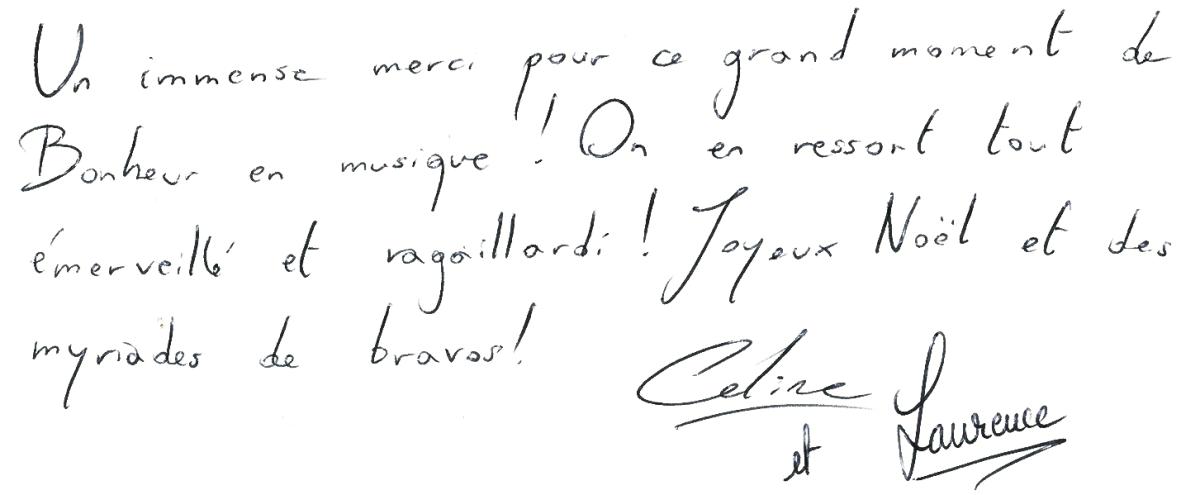 Un immense merci pour ce grand moment de
Bonheur en musique ! On en ressort tout
émerveillé et ragaillardi ! Joyeux Noël et des
myriades de bravos !
Celine
et Laurence